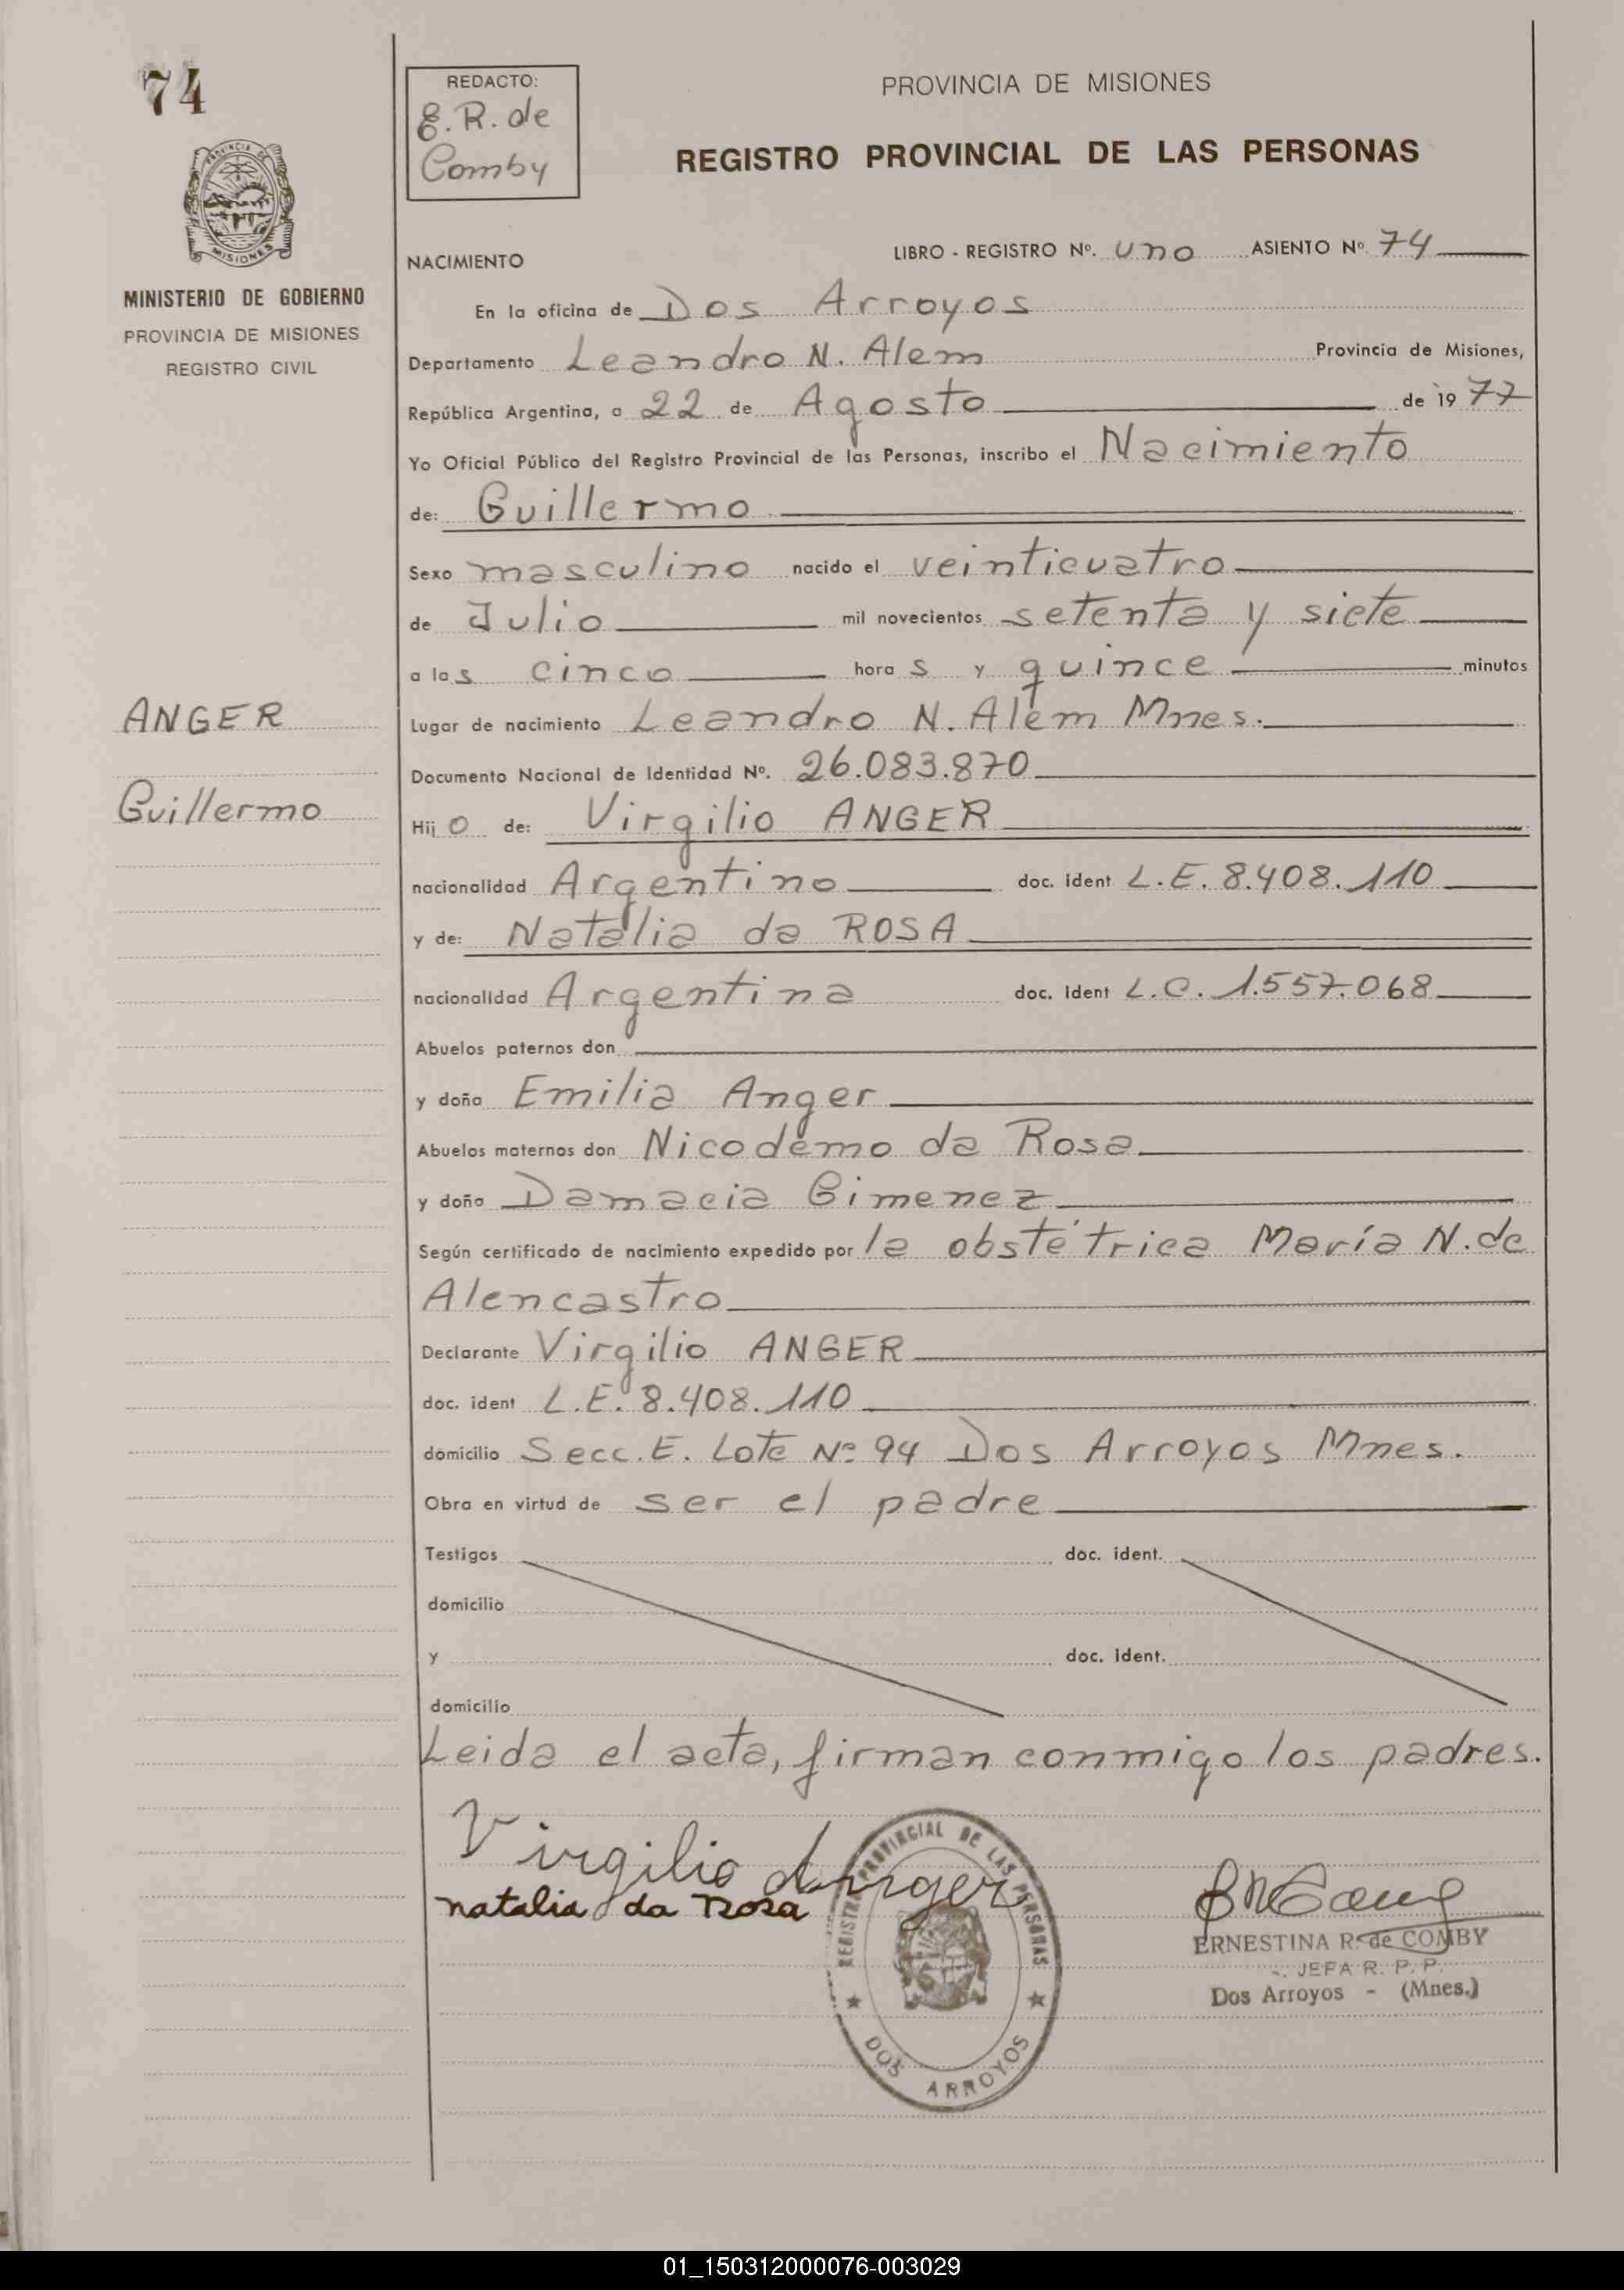 74
REDACTO:
E. R. de
Comby
PROVINCIA DE MISIONES
REGISTRO PROVINCIAL DE LAS PERSONAS
PROVINCIA DE
MISIONES
MINISTERIO DE GOBIERNO
PROVINCIA DE MISIONES
REGISTRO CIVIL
NACIMIENTO
LIBRO - REGISTRO Nº. uno ASIENTO Nº 74
En la oficina de Dos Arroyos
Departamento Leandro N. Alem Provincia de Misiones,
República Argentina, a 22 de Agosto de 1977
Yo Oficial Público del Registro Provincial de las Personas, inscribo el Nacimiento
de: Guillermo
Sexo masculino nacido el veinticuatro
de Julio mil novecientos setenta y siete
a las cinco horas y quince minutos
ANGER
Lugar de nacimiento Leandro N. Alem Mnes.
Documento Nacional de Identidad Nº. 26.083.870
Guillermo
Hijo de: Virgilio ANGER
nacionalidad Argentino doc. ident L.E. 8.408.110
y de: Natalia da ROSA
nacionalidad Argentina doc. ident L.C. 1.557.068
Abuelos paternos don
y doña Emilia Anger
Abuelos maternos don Nicodemo da Rosa
y doña Damacia Gimenez
Según certificado de nacimiento expedido por la obstétrica María N. de
Alencastro
Declarante Virgilio ANGER
doc. ident L.E. 8.408.110
domicilio Secc. E. Lote Nº 94 Dos Arroyos Mnes.
Obra en virtud de ser el padre
Testigos doc. ident.
domicilio
y doc. ident.
domicilio
Leida el acta, firman conmigo los padres.
Virgilio Anger
natalia da Rosa
REGISTRO PROVINCIAL DE LAS PERSONAS
DOS ARROYOS
ERNESTINA R. de COMBY
JEFA R. P. P.
Dos Arroyos - (Mnes.)
01_150312000076-003029